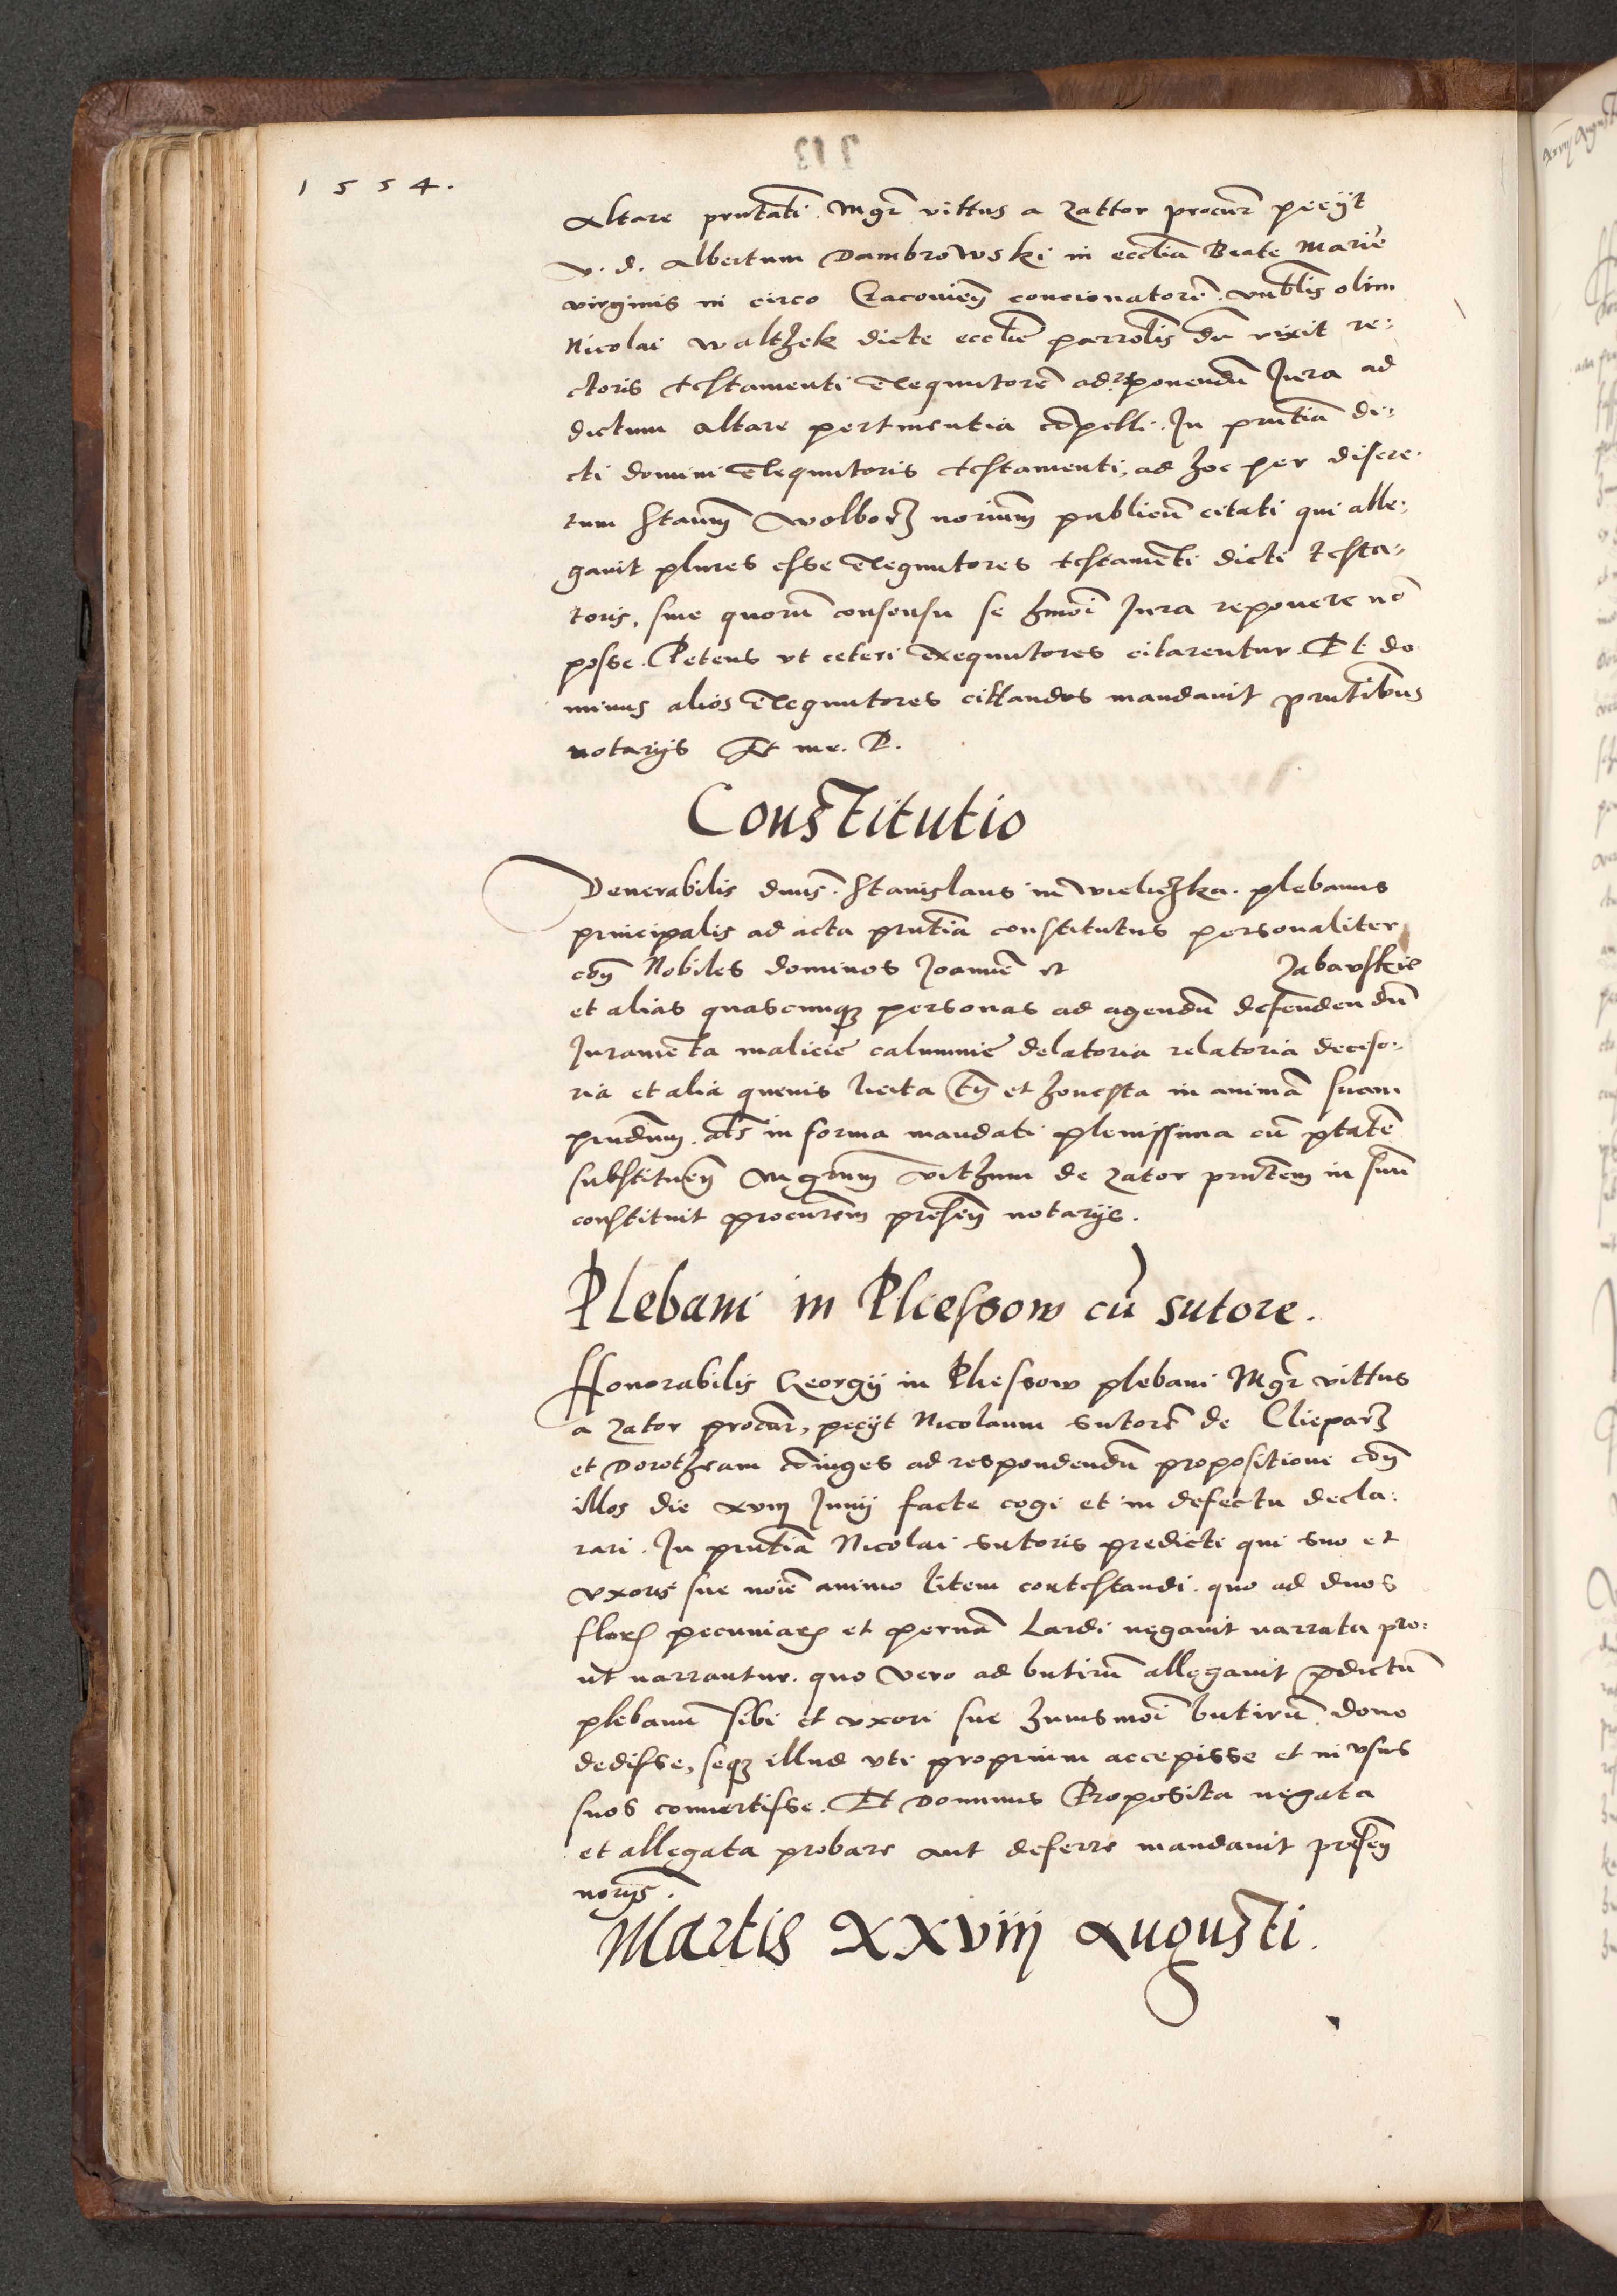 1554.
Altare prntati. Mgr vittus a Zattor procur petijt
v. d. Albertum Dambrowski in ecclia Beate Marie
virginis in circo Cracovien concionatore. vnblis olim
Nicolai Waltzek dicte ecclie parrolis du vixit re:
ctoris testamenti exequutore ad reponendu Jura ad
dictum altare pertinentia compelli. In prntia di:
cti domini exequutoris testamenti, ad hoc per discre:
tum Staum Wolborz norium publicu citati qui alle:
gavit plures esse exequutores testamenti dicti testa:
toris, sine quoru consensu se hmoi Jura reponere no
posse. Petens vt ceteri exequutores citarentur. Et do
minus alios exequutores cittandos mandavit prntibus
notarijs Et me. P.
Constitutio
Venerabilis dnus. Stanislaus in Wieliczka. plebanus
principalis ad acta prntia constitutus personaliter
con Nobiles dominos Joanne et Zabawskie
et alias quascunque personas ad agendu defendendu
Juramenta malicie calumnie delatoria relatoria deciso:
ria et alia quevis licita tn et honesta in anima suam
prndum. als in forma mandati plenissima cu ptate
substituen Mgrum Vitthum de Zator prntem in suu
constituit procurem presen notarijs.
Plebani in Pliessow cu sutore.
Honorabilis Georgij in Pliessow plebani Mgr vittus
a Zator procur, petijt Nicolaum Sutore de Clieparz
et Dorotheam coniuges ad respondendu propositioni con
illos die xviij Junij facte cogi et in defectu decla:
rari. In prntia Nicolai Sutoris predicti qui suo et
vxoris sue noie animo litem contestandi. quo ad duos
flor pecuniar et perna Lardi negavit narrata pro:
ut narrantur. quo vero ad butiru allegavit predictu
plebanu sibi et vxori sue huiusmoi butiru dono
dedisse, seque illud vti proprium accepisse et in vsus
suos convertisse. Et Dominus Proposita negata
et allegata probare aut deferre mandavit presen
norijs.
Martis XXviij Augusti.